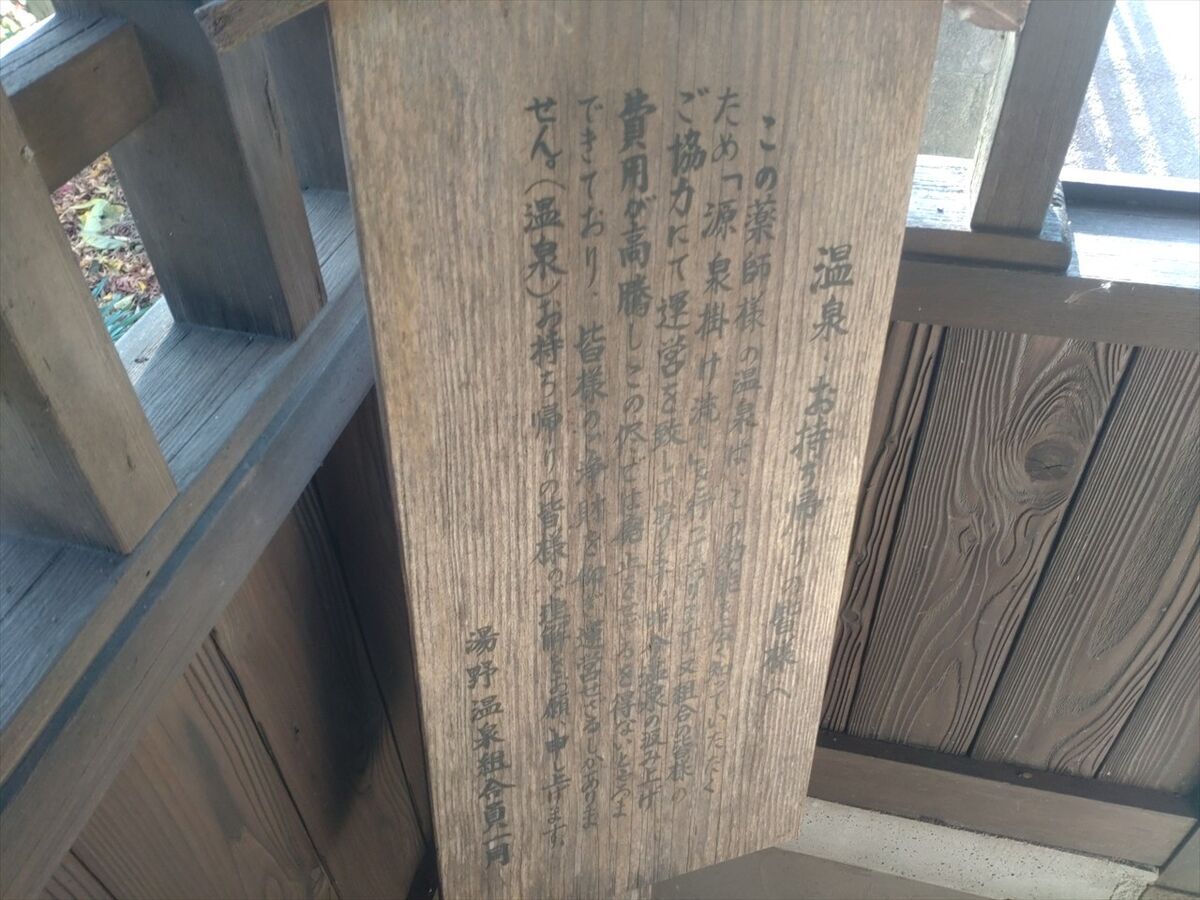 温泉・お持ち帰りの皆様へ
この薬師様の温泉は、この効能を広く知っていただく
ため「源泉掛け流しを行っております又組合の皆様の
ご協力にて運営を致しております。昨今温泉の汲み上げ
費用が高騰しこの侭では廃止せざるを得ないところま
できており、皆様の浄財を仰ぎ運営せざるしかありま
せん。(温泉)お持ち帰りの皆様のご理解をお願い申し上げます
湯野温泉組合員一同